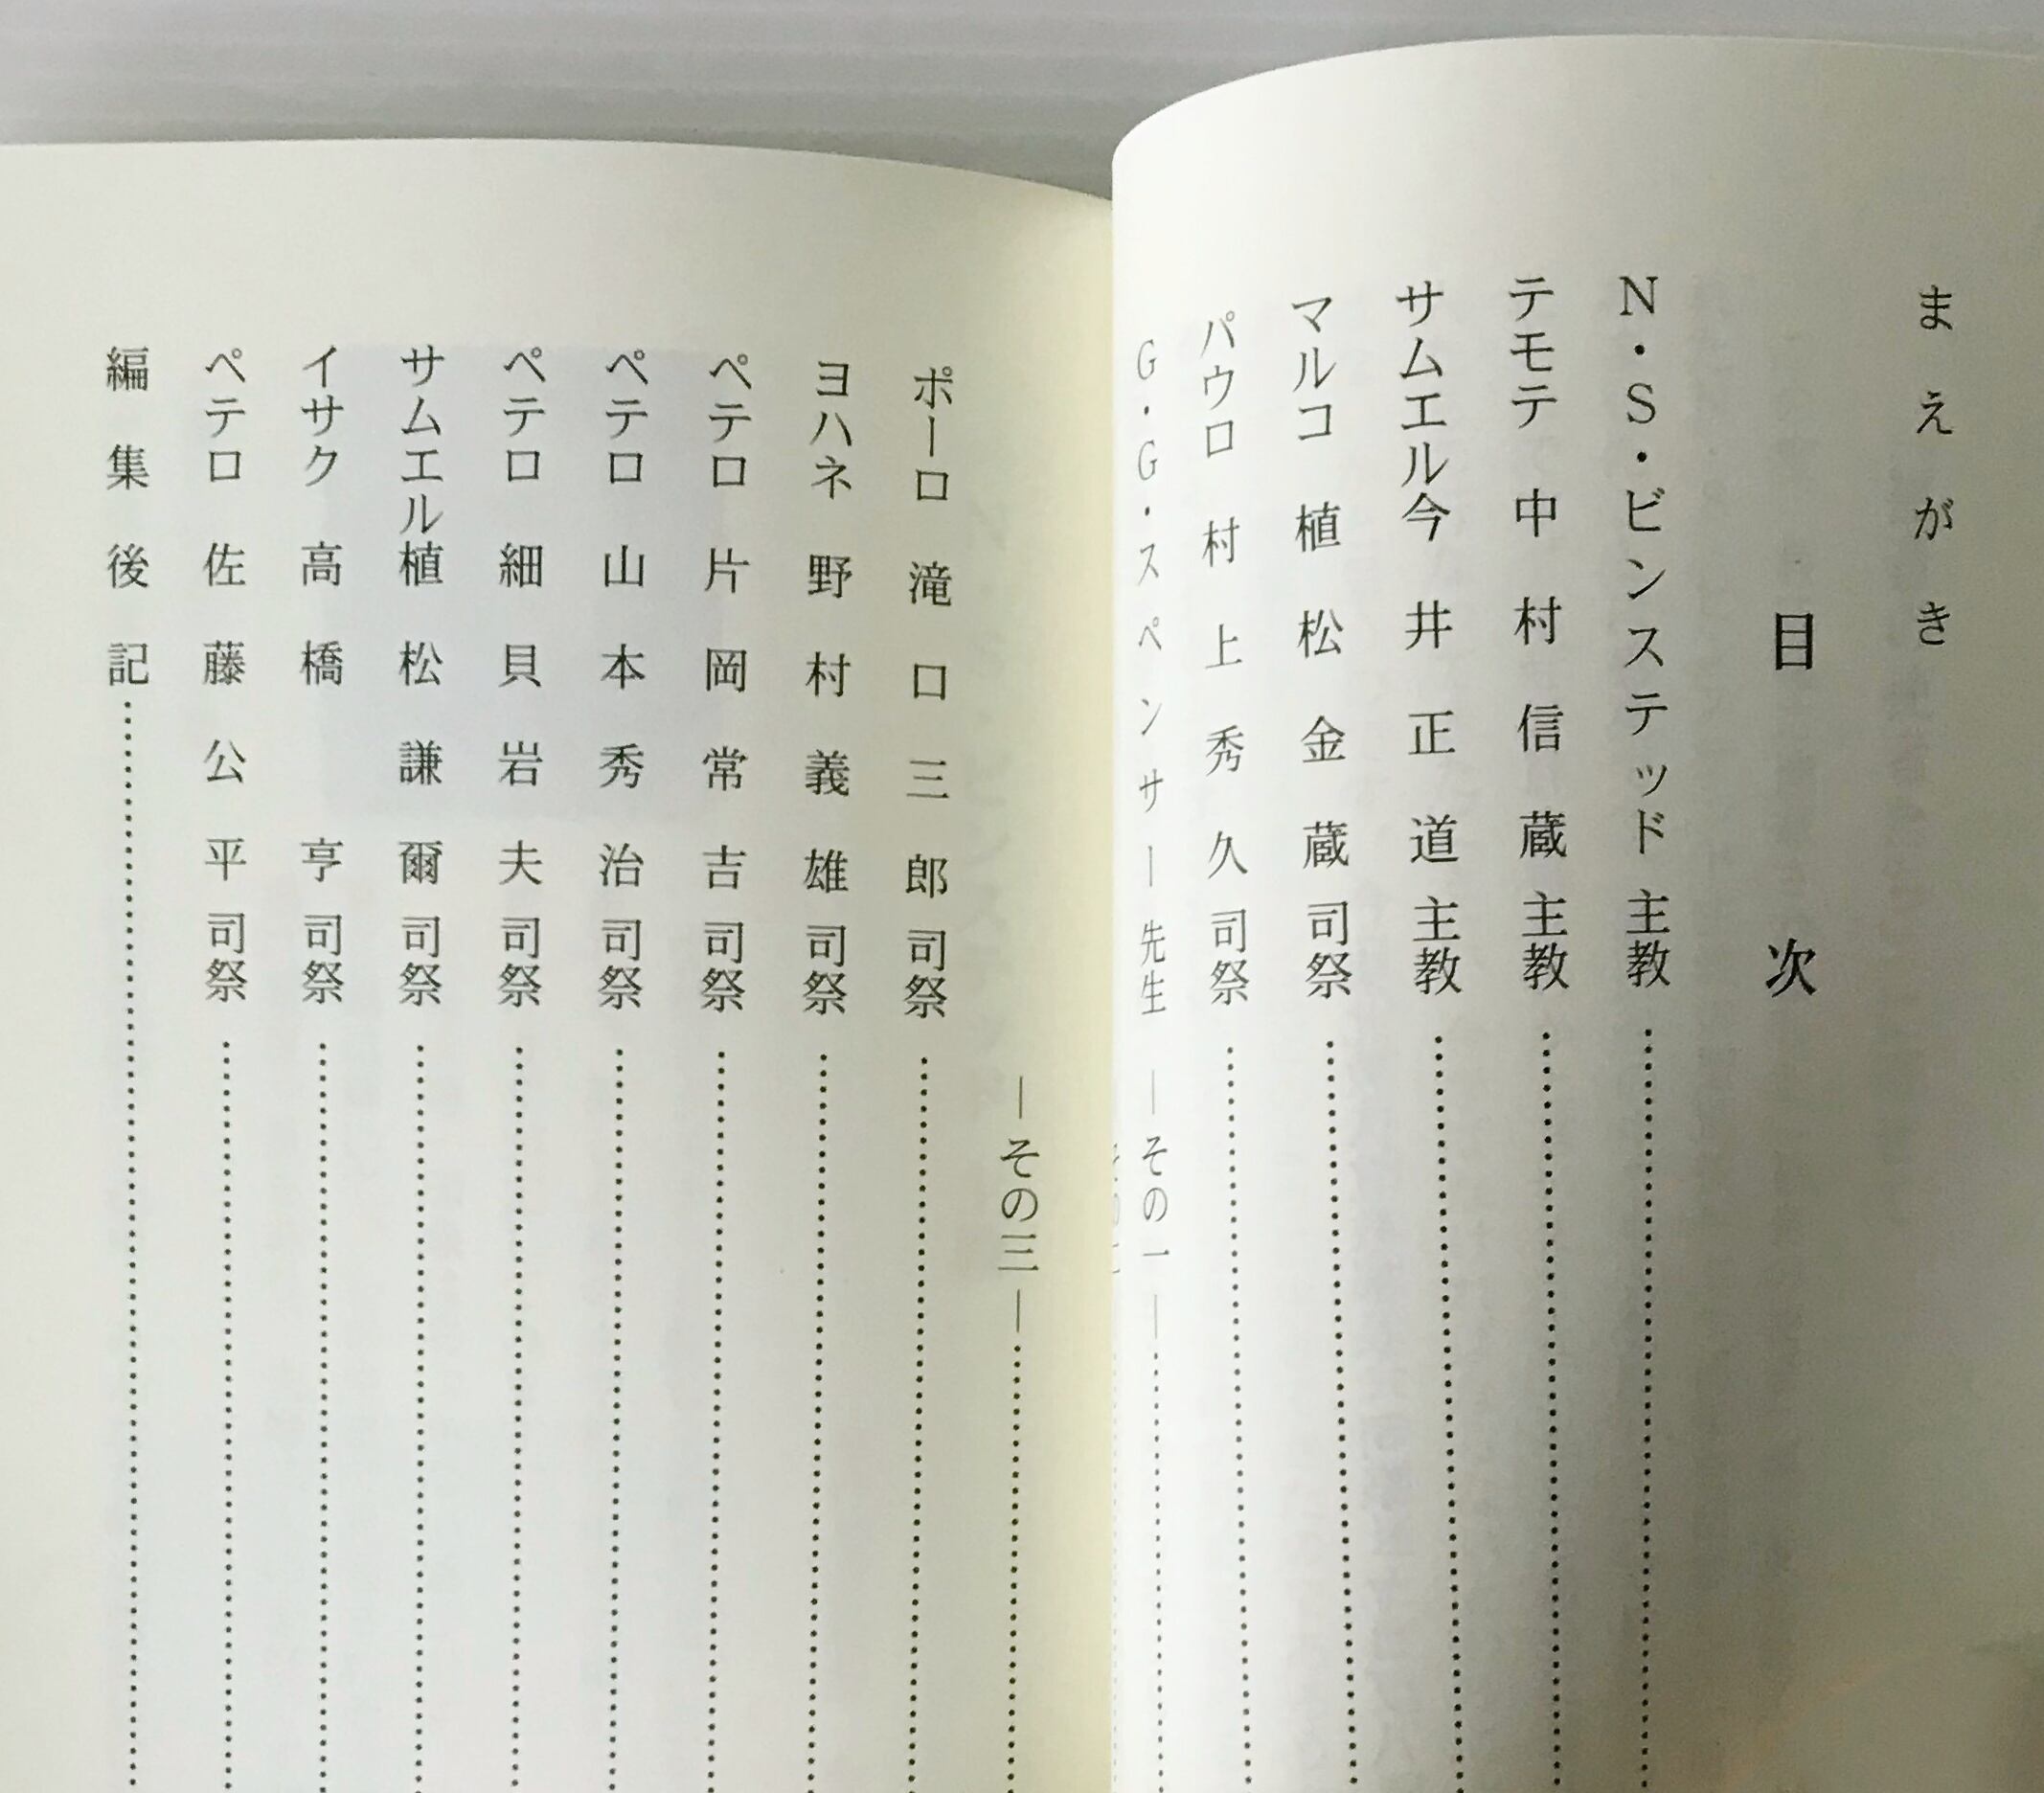 まえがき
目次
N・S・ビンステッド主教
テモテ 中村信蔵主教
サムエル今井正道主教
マルコ 植松金蔵司祭
パウロ 村上秀久司祭
G・G・スペンサー先生 ―その一―
―その三―
ポーロ 滝口三郎司祭
ヨハネ 野村義雄司祭
ペテロ 片岡常吉司祭
ペテロ 山本秀治司祭
ペテロ 細貝岩夫司祭
サムエル植松謙爾司祭
イサク 高橋 亨司祭
ペテロ 佐藤公平司祭
編集後記